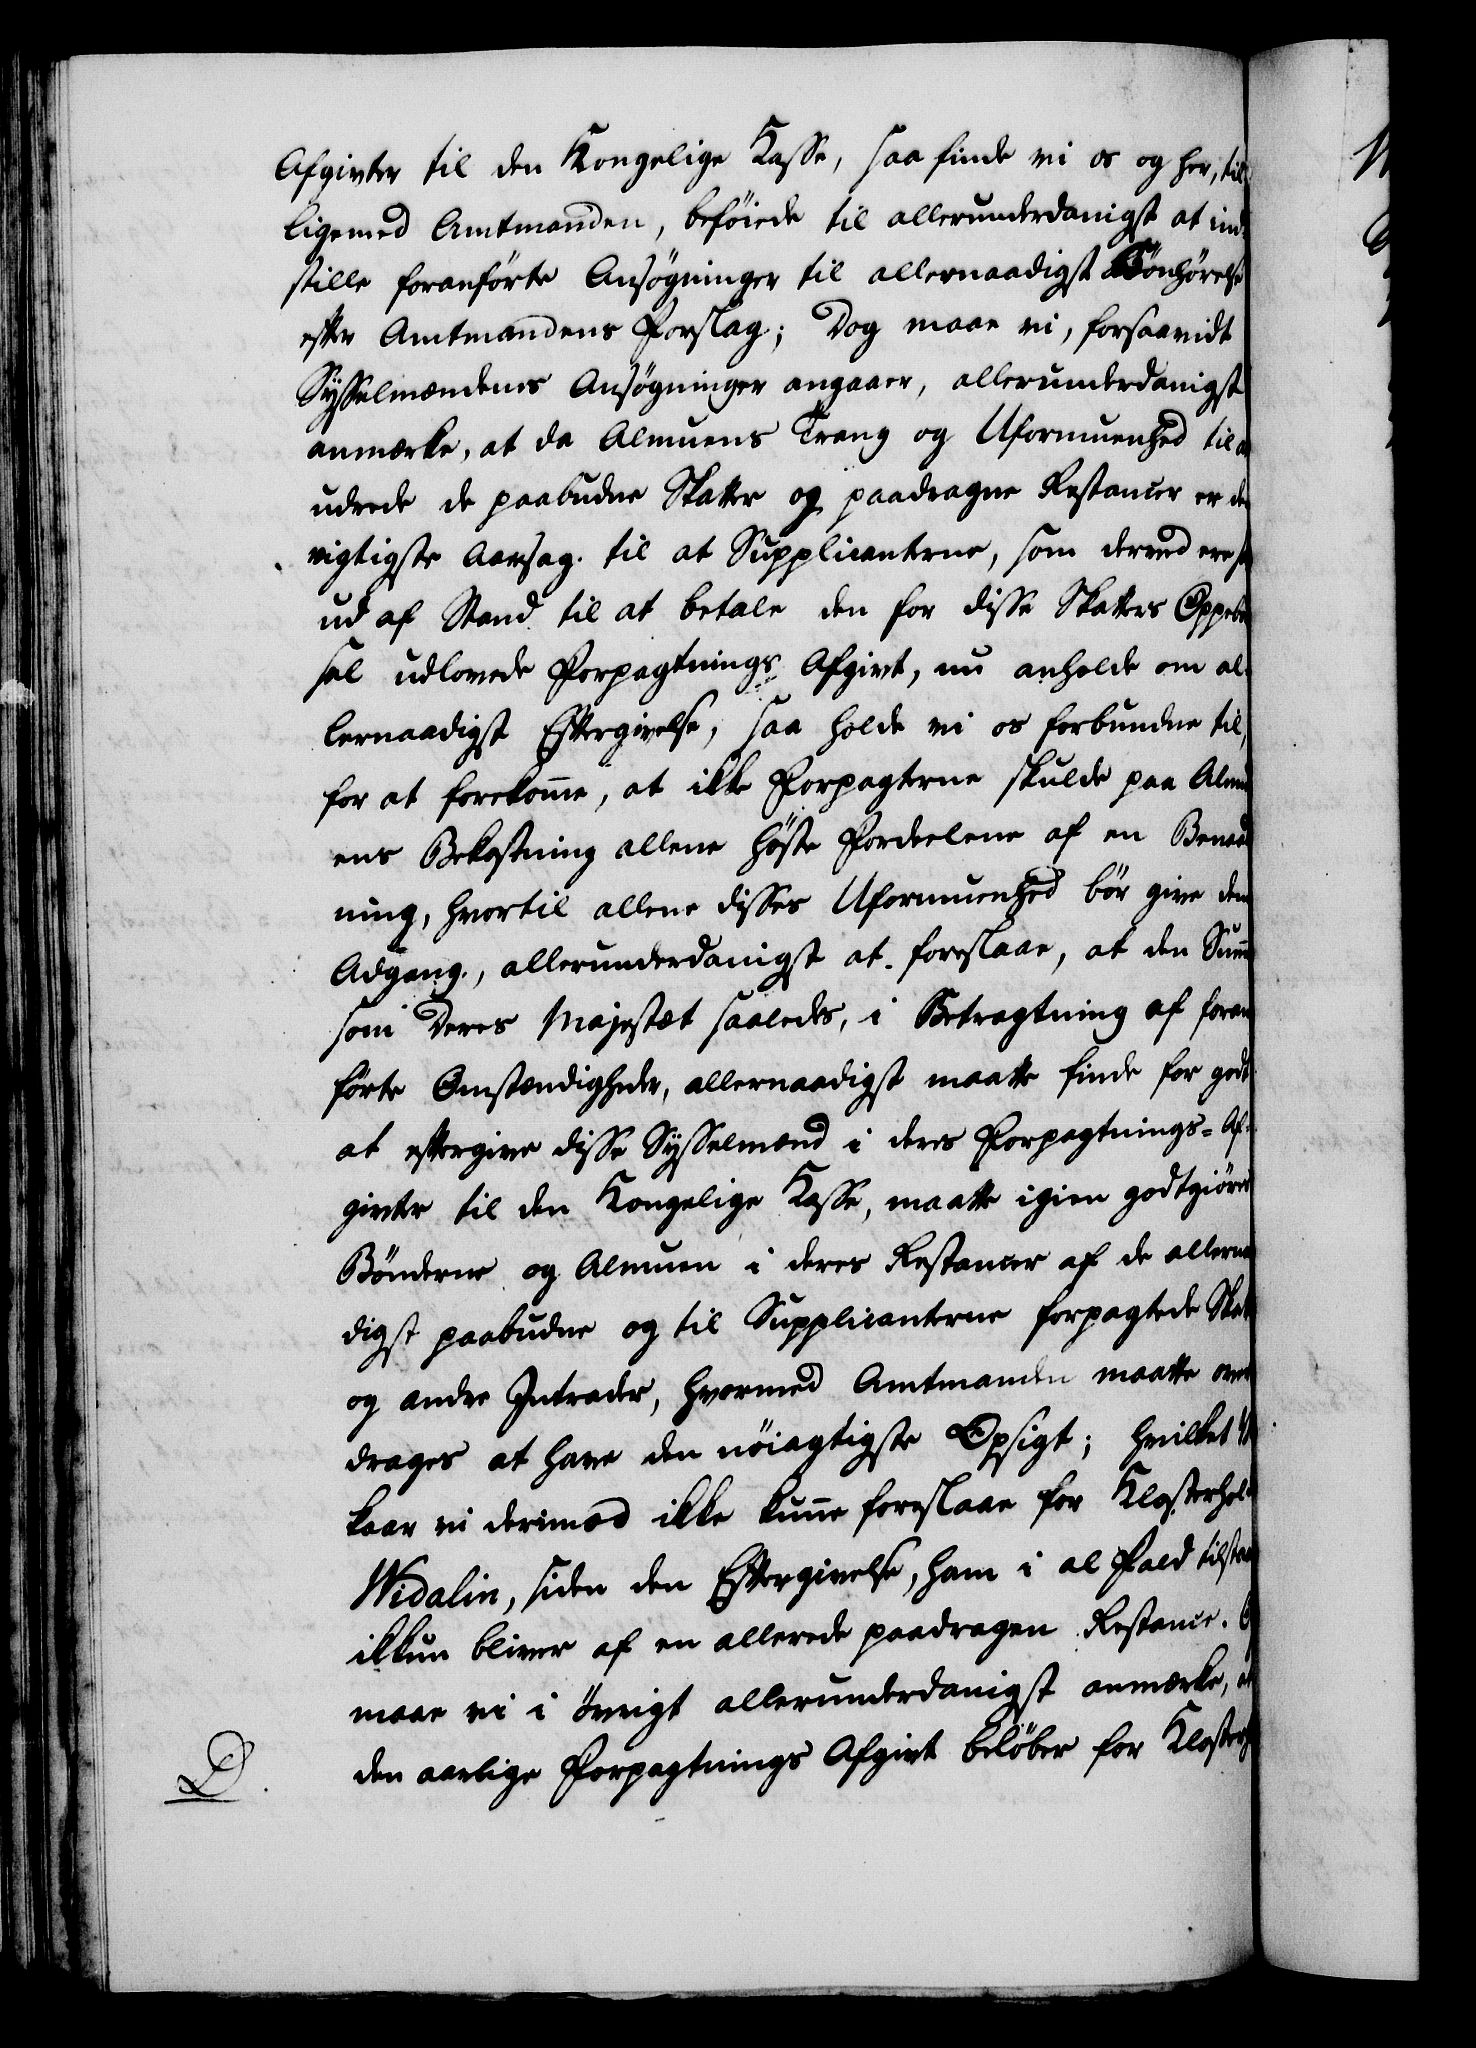 Afgivter til den Kongelige Kasse, saa finde vi os og her, til
ligemed Amtmanden, beföiede til allerunderdanigst at ind-
stille foranförte Ansögninger til allernaadigst Bönhörelse
efter Amtmandens Forslag; Dog maae vi, forsaavidt
Sysselmændenes Ansögninger angaaer, allerunderdanigst
anmærke, at da Almuens Trang og Uformuenhed til at
udrede de paabudne Skatter og paadragne Restancer er den
vigtigste Aarsag til at Supplicanterne, som derved ere sat
ud af Stand til at betale den for disse Skatters Oppebør
sel udlovede Forpagtnings Afgivt, nu anholde om al-
lernaadigst Eftergivelse, saa holde vi os forbundne til,
for at forekomme, at ikke Forpagterne skulde paa Almu
ens Bekostning allene höste Fordeelene af en Benaad
ning, hvortil allene disses Uformuenhed bör give dem
Adgang, allerunderdanigst at foreslaae, at den Summe
som Deres Majestæt saaledes, i Betragtning af foran
förte Omstændigheder, allernaadigst maatte finde for godt
at eftergive disse Sysselmænd i deres Forpagtnings-Af-
givter til den Kongelige Kasse, maatte igien godtgiöres
Bönderne og Almuen i deres Restancer af de allernaa
digst paabudne og til Supplicanterne forpagtede Skat
og andre Intrader, hvormed Amtmanden maatte over
drages at have den nöiagtigste Opsigt; hvilket Vil
kaar vi derimod ikke kunne foreslaae for Klosterhold
Widalin, siden den Eftergivelse, ham i al Fald tilstaaes
ikkun bliver af en allerede paadragen Restance. Og
maae vi i övrigt allerunderdanigst anmærke, at
den aarlige Forpagtnings Afgivt belöber for Klosterh
D.